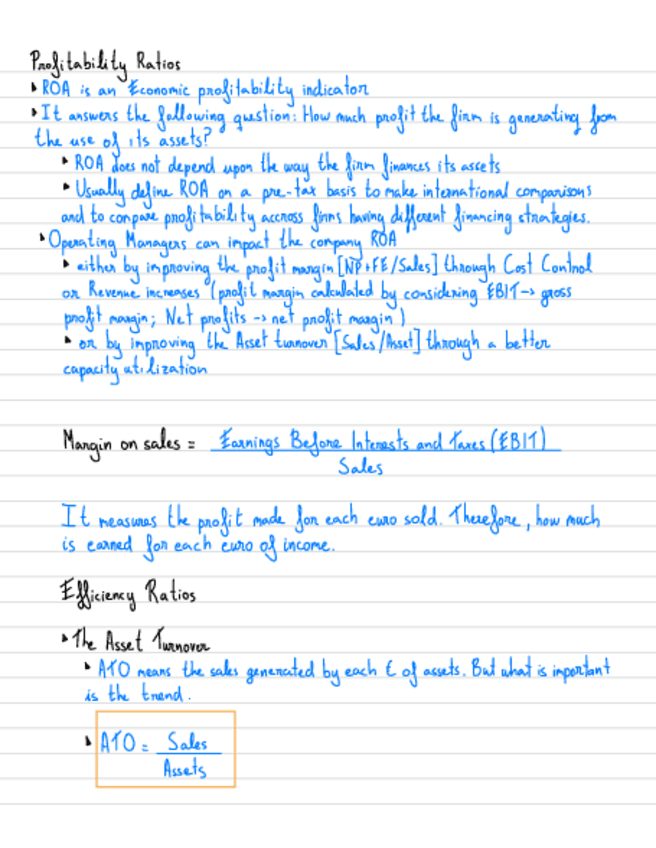 Profitability Ratios
• ROA is an Economic profitability indicator
• It answers the following question: How much profit the firm is generating from
the use of its assets?
• ROA does not depend upon the way the firm finances its assets
• Usually define ROA on a pre-tax basis to make international comparisons
and to compare profitability accross firms having different financing strategies.
• Operating Managers can impact the company ROA
• either by improving the profit margin [NP+FE/Sales] through Cost Control
or Revenue increases (profit margin calculated by considering EBIT -> gross
profit margin; Net profits -> net profit margin)
• or by improving the Asset turnover [Sales/Asset] through a better
capacity utilization
Margin on sales = Earnings Before Interests and Taxes (EBIT)
Sales
It measures the profit made for each euro sold. Therefore, how much
is earned for each euro of income.
Efficiency Ratios
• The Asset Turnover
• ATO means the sales generated by each € of assets. But what is important
is the trend.
• ATO = Sales
Assets